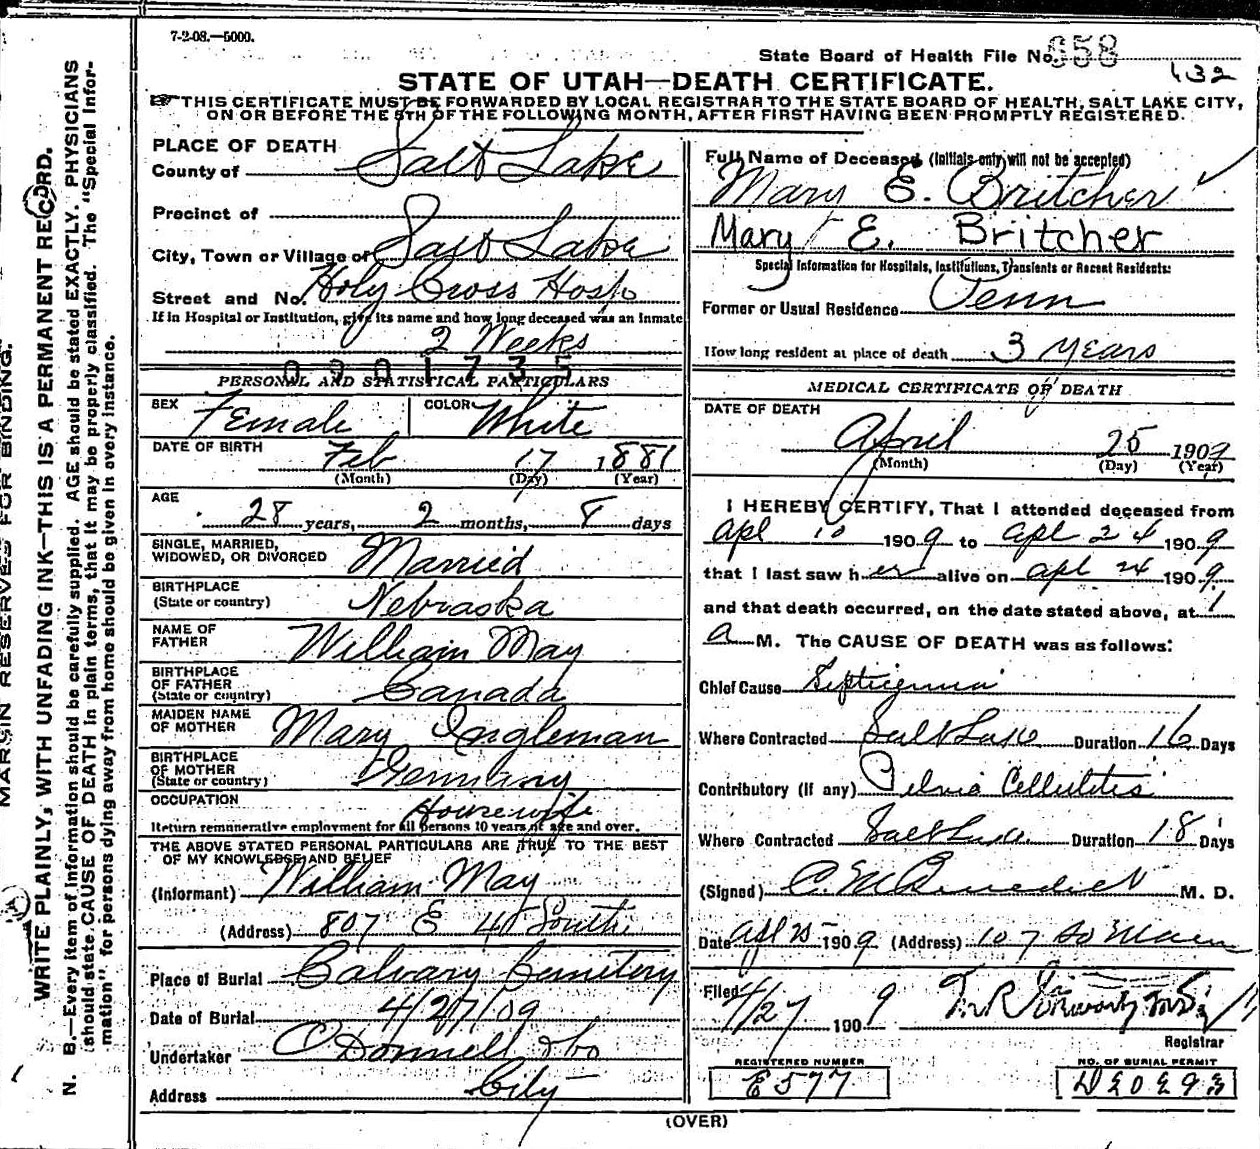 7-2-08.—5000.
State Board of Health File No. 958
132
STATE OF UTAH—DEATH CERTIFICATE.
THIS CERTIFICATE MUST BE FORWARDED BY LOCAL REGISTRAR TO THE STATE BOARD OF HEALTH, SALT LAKE CITY,
ON OR BEFORE THE 5TH OF THE FOLLOWING MONTH, AFTER FIRST HAVING BEEN PROMPTLY REGISTERED.
MARGIN RESERVED FOR BINDING.
WRITE PLAINLY, WITH UNFADING INK—THIS IS A PERMANENT RECORD.
N. B.—Every item of information should be carefully supplied. AGE should be stated EXACTLY. PHYSICIANS
should state CAUSE OF DEATH in plain terms, that it may be properly classified. The "Special Infor-
mation" for persons dying away from home should be given in every instance.
PLACE OF DEATH
County of Salt Lake
Precinct of
City, Town or Village of Salt Lake
Street and No. Holy Cross Hosp
If in Hospital or Institution, give its name and how long deceased was an Inmate
2 Weeks
0901735
PERSONAL AND STATISTICAL PARTICULARS
SEX Female COLOR White
DATE OF BIRTH Feb 17 1881
(Month) (Day) (Year)
AGE
28 years, 2 months, 8 days
SINGLE, MARRIED,
WIDOWED, OR DIVORCED Married
BIRTHPLACE
(State or country) Nebraska
NAME OF
FATHER William May
BIRTHPLACE
OF FATHER
(State or country) Canada
MAIDEN NAME
OF MOTHER Mary Ingleman
BIRTHPLACE
OF MOTHER
(State or country) Germany
OCCUPATION Housewife
Return remunerative employment for all persons 10 years of age and over.
THE ABOVE STATED PERSONAL PARTICULARS ARE TRUE TO THE BEST
OF MY KNOWLEDGE AND BELIEF
(Informant) William May
(Address) 807 E 4th South
Place of Burial Calvary Cemetery
Date of Burial 4/27/09
Undertaker O'Donnell & Co
Address City
Full Name of Deceased (Initials only will not be accepted)
Mary E. Britcher
Mary E. Britcher
Special Information for Hospitals, Institutions, Transients or Recent Residents:
Former or Usual Residence Tenn
How long resident at place of death 3 years
MEDICAL CERTIFICATE OF DEATH
DATE OF DEATH
April 25 1909
(Month) (Day) (Year)
I HEREBY CERTIFY, That I attended deceased from
Apl 10 1909 to Apl 24 1909
that I last saw her alive on Apl 24 1909
and that death occurred, on the date stated above, at 1
a M. The CAUSE OF DEATH was as follows:
Chief Cause
Where Contracted Salt Lake Duration 16 Days
Contributory (If any) Pelvic Cellulitis
Where Contracted Salt Lake Duration 18 Days
(Signed) M. D.
Date Apl 25 1909 (Address) 107 So Main
Filed 4/27 1909
Registrar
REGISTERED NUMBER
E577
NO. OF BURIAL PERMIT
D20293
(OVER)